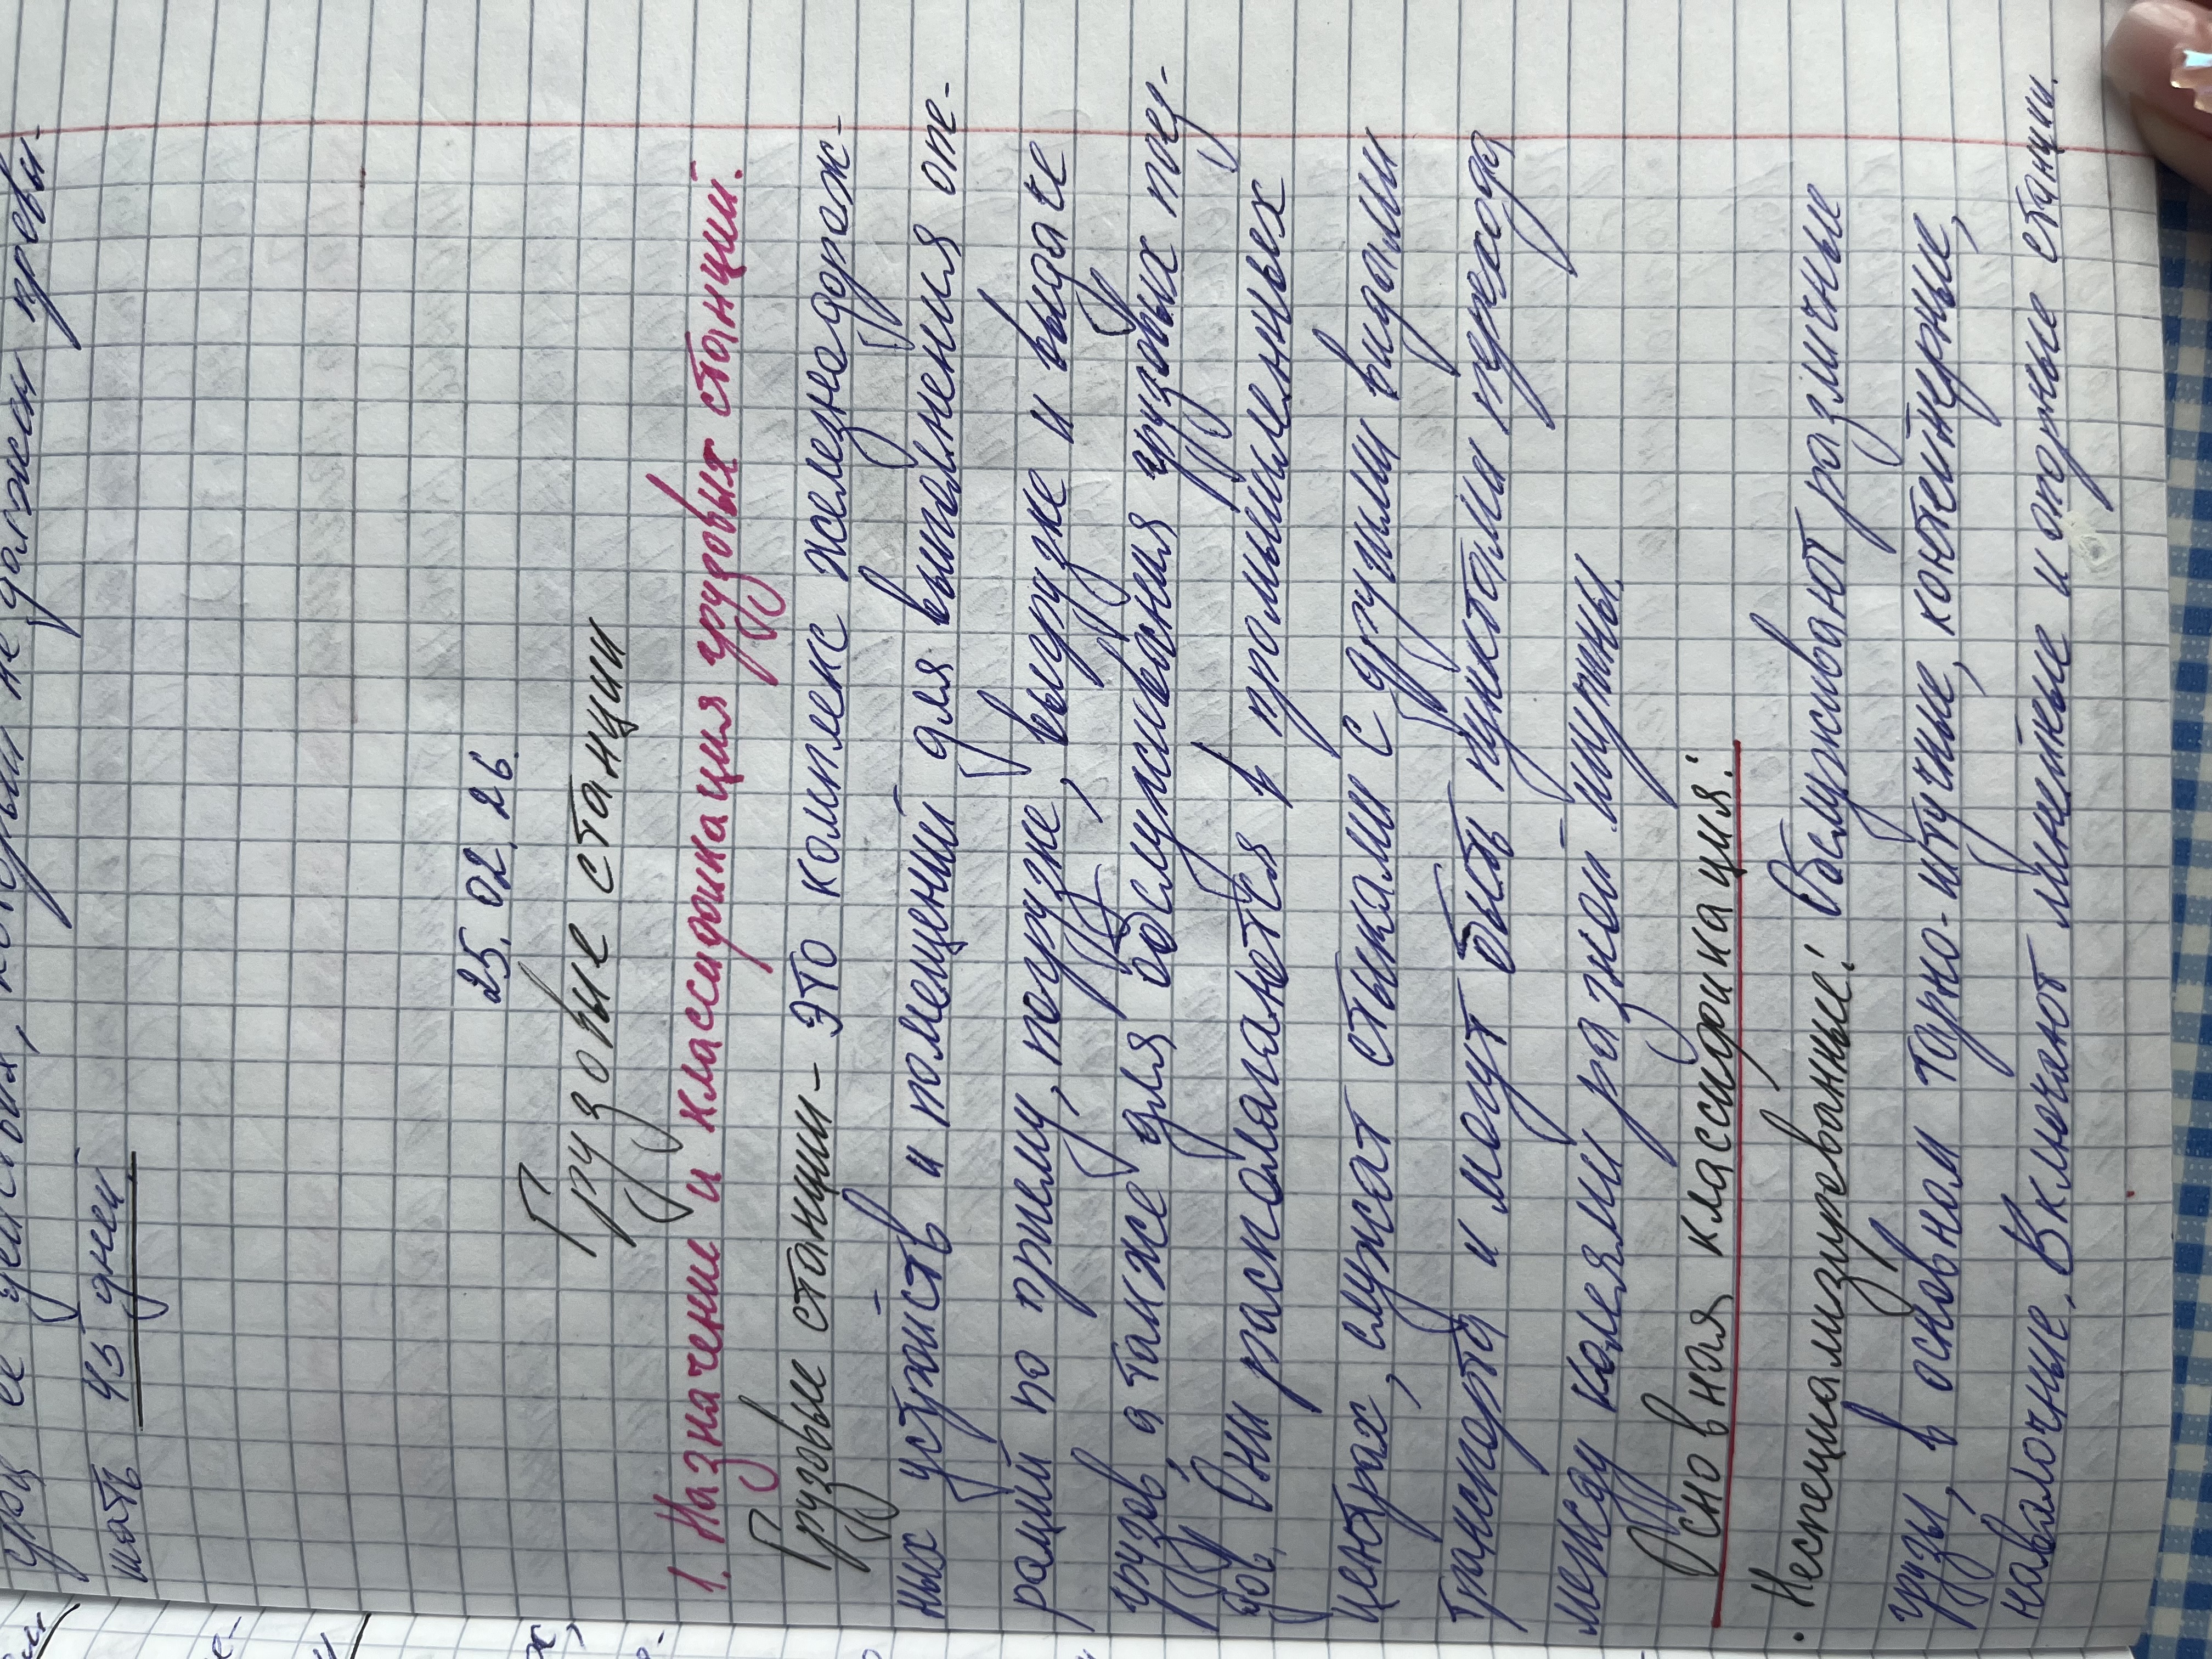 не должен превы-
шать 45 дней
25.02.26.
Грузовые станции
1. Назначение и классификация грузовых станций.
Грузовые станции - это комплекс железнодорож-
ных устройств и помещений для выполнения опе-
раций по приему, погрузке, выгрузке и выдаче
грузов, а также для обслуживания грузовых поез-
дов. Они располагаются в промышленных
центрах, служат стыками с другими видами
транспорта и могут быть пунктами перехода
между колеями разной ширины.
Основная классификация:
· Неспециализированные: Обслуживают различные
грузы, в основном тарно-штучные, контейнерные,
навалочные. Включают линейные и опорные станции.